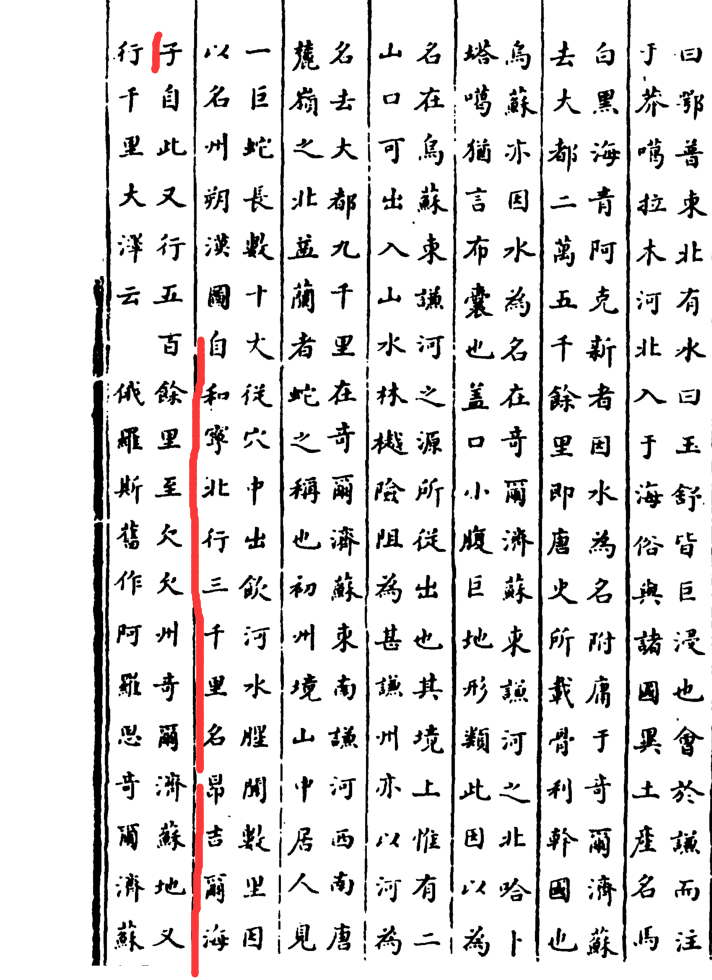 曰鄂普東北有水曰玉舒皆巨浸也會於謙而注
于莽噶拉木河北入于海俗與諸國異土産名馬
白黑海青阿克新者因水為名附庸于奇爾濟蘇
去大都二萬五千餘里即唐史所載骨利幹國也
烏蘇亦因水為名在奇爾濟蘇東謙河之北哈卜
塔噶猶言布囊也盖口小腹巨地形類此因以為
名在烏蘇東謙河之源所従出也其境上惟有二
山口可出入山水林樾險阻為甚謙州亦以河為
名去大都九千里在奇爾濟蘇東南謙河西南唐
麓嶺之北益蘭者蛇之稱也初州境山中居人見
一巨蛇長數十丈従穴中出飲河水腥聞數里因
以名州朔漠圖自和寧北行三千里名昻吉爾海
子自此又行五百餘里至欠欠州奇爾濟蘇地又
行千里大澤云　俄羅斯舊作阿羅思奇爾濟蘇